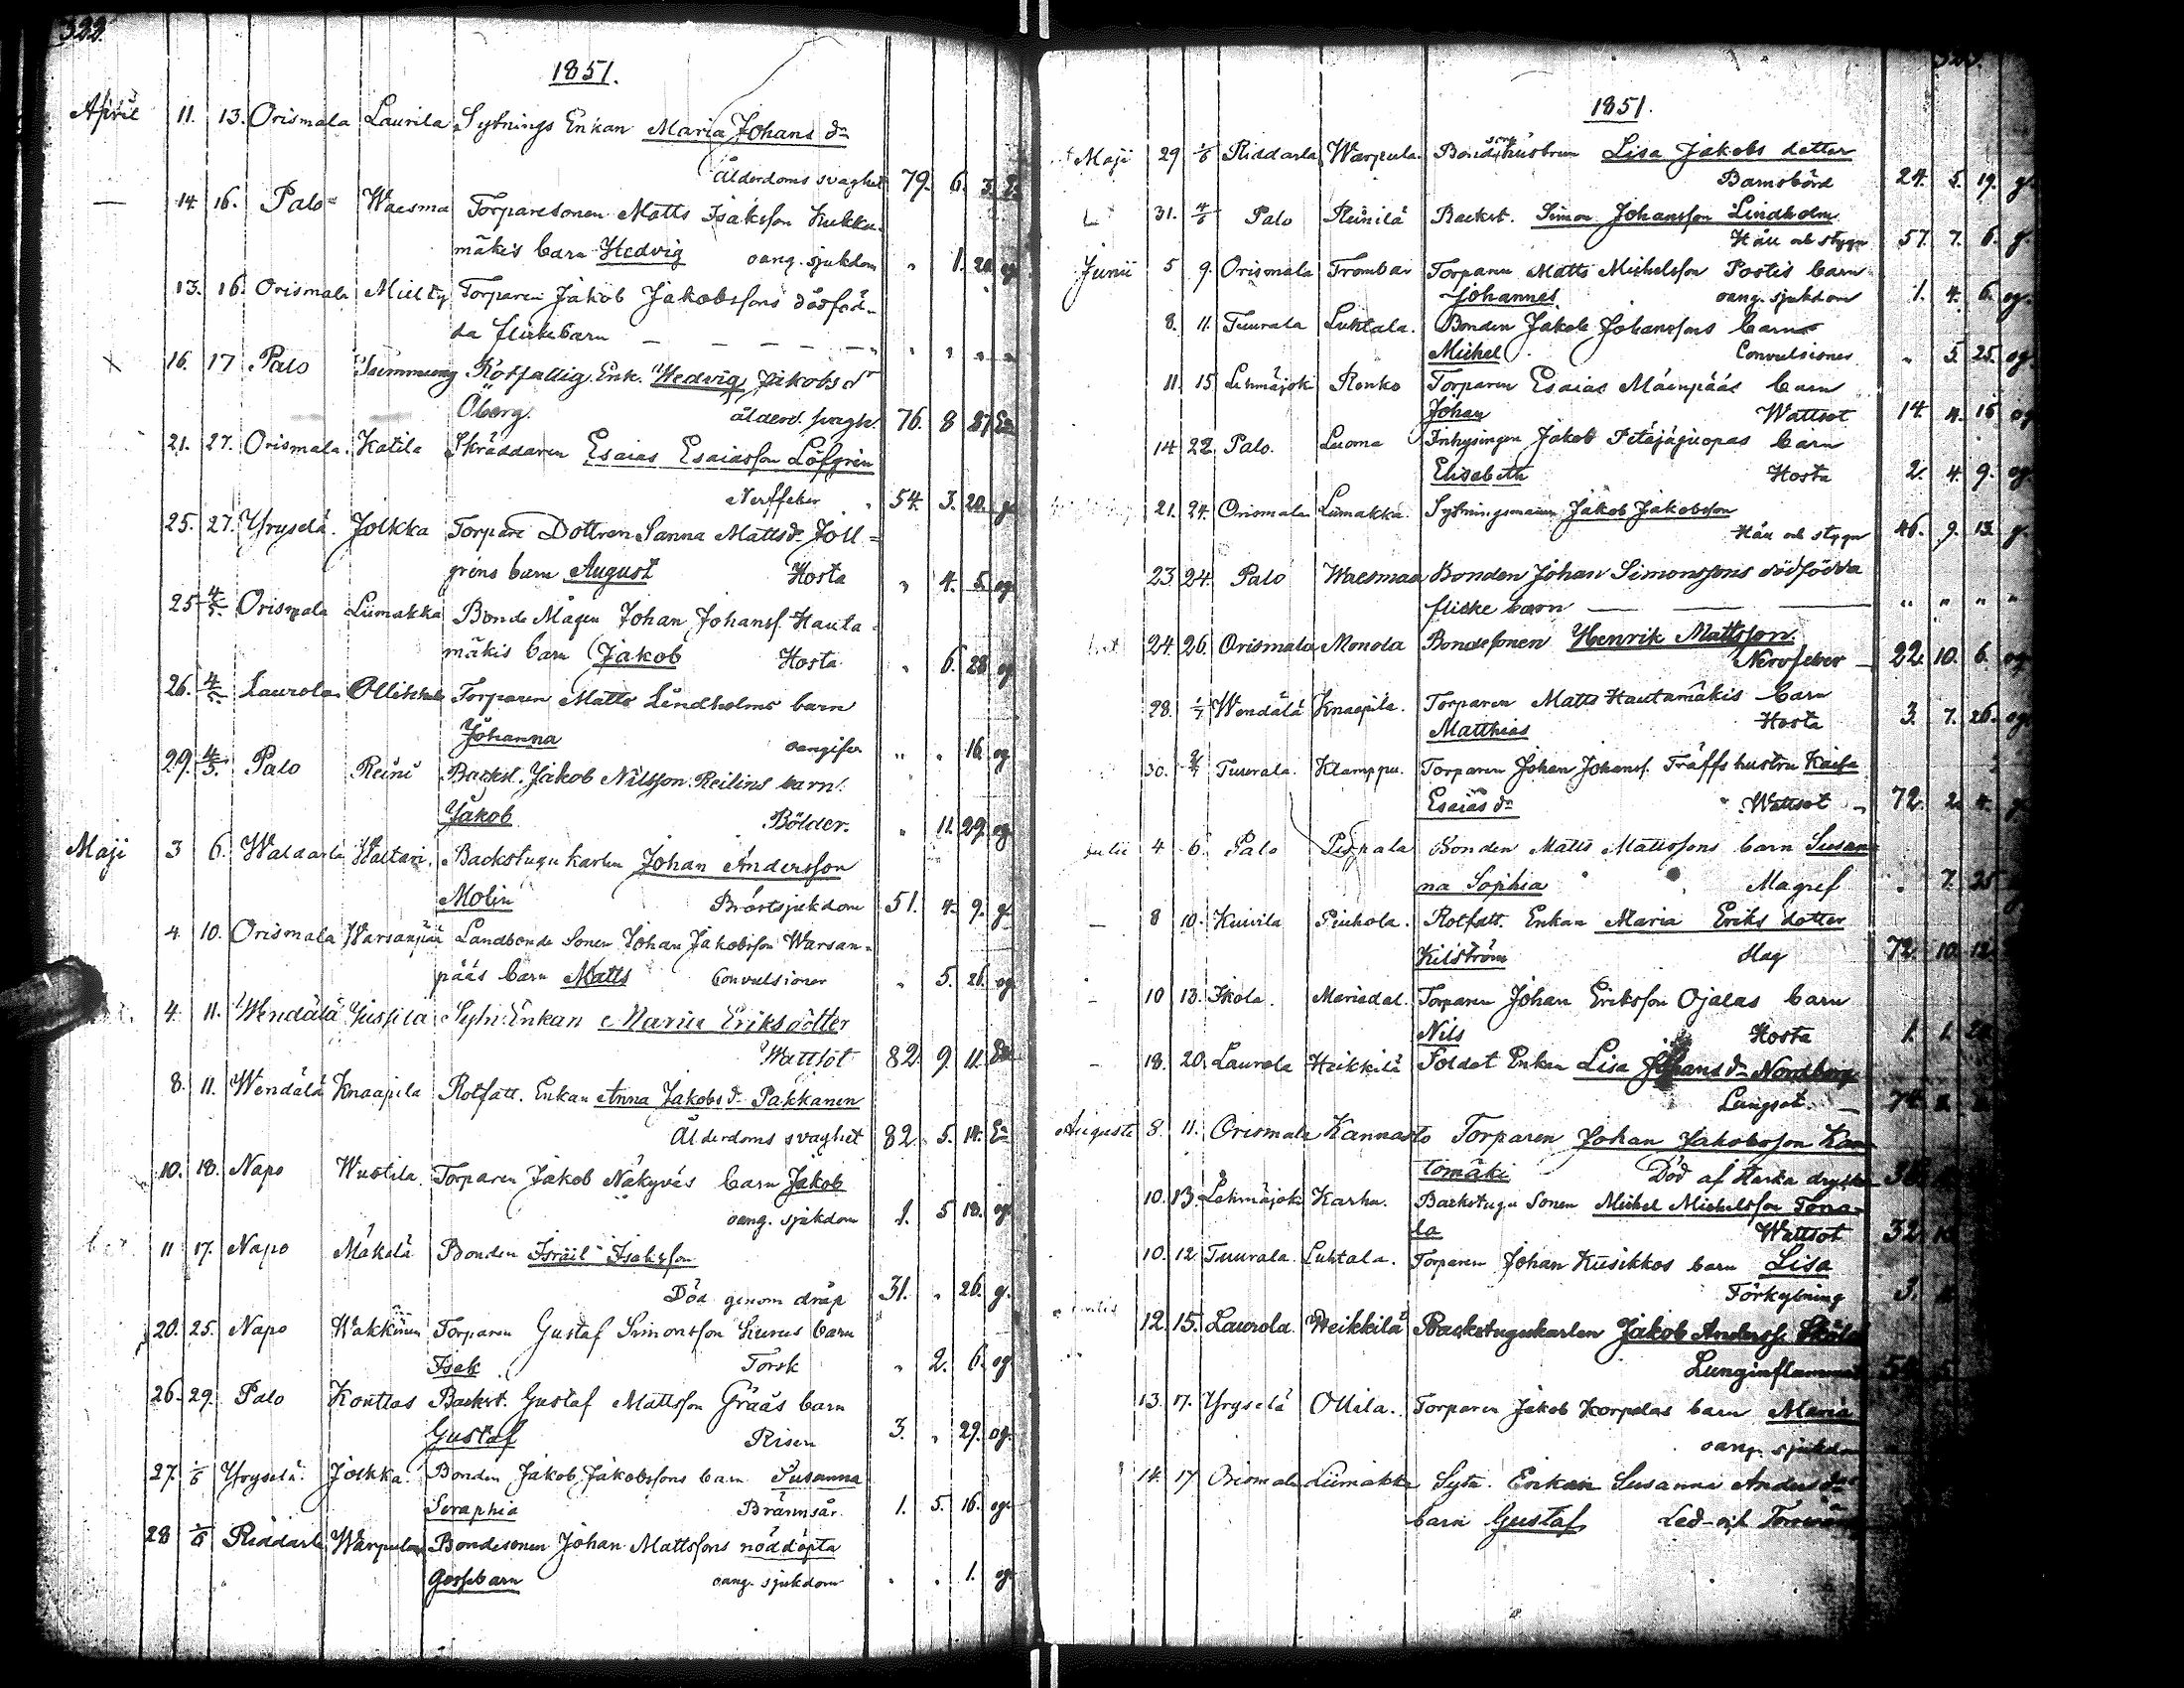 322
1851.
April 11. 13. Orismala Laurila Sytnings Enkan Maria Johans dr
Ålderdoms svaghet 79. 6. 3. En
— 14. 16. Palo= Waesma Torparesonen Matts Isaksson Kukku-
mäkis barn Hedvig oang. sjukdom " 1. 20. og
13. 16. Orismala Mielty Torparen Jakob Jakobssons dödföd-
da flickebarn — — — — — " " " "
16. 17 Palo Rotfattig Enk. Hedvig Jakobs dr
Öberg. ålderd. svagh. 76. 8 27 En
21. 27. Orismala Katila Skräddaren Esaias Esaiasson Löfgren
Nerffeber 54. 3. 20. g.
25. 27. Yryselä. Jolkka Torpare Dottren Sanna Mattsdr Joll=
grens barn August Hosta " 4. 5. og
25 4/5. Orismala Liimakka Bonde Mågen Johan Johanss. Hauta-
mäkis barn Jakob Hosta " 6. 28 og
26. 4/5. Laurola Ollikkala Torparen Matts Lindholms barn
Johanna oangifven " " 16. og
29. 4/5. Palo Reini Backst. Jakob Nilsson Reilins barn
Jakob Bölder. " 11. 29. og.
Maji 3 6. Waldarla Waltari. Backstugu karlen Johan Andersson
Molin Bröstsjukdom 51. 4. 9. g.
4. 10. Orismala Warsanpää Landbonde Sonen Johan Jakobsson Warsan-
pääs barn Matts Convulsioner " 5. 26. og
4. 11. Wendälä Jussila Sytn. Enkan Maria Eriksdotter
Wattsot 82. 9. 11. En
8. 11. Wendälä Knaapila Rotfatt. Enkan Anna Jakobs dr Pakkanen
Ålderdoms svaghet 82. 5. 14. En
10. 18. Napo Wustila Torparen Jakob Näkyväs barn Jakob
oang. sjukdom 1. 5 18. og.
11 17. Napo Mäkelä Bonden Israël Isaksson
Död genom dråp 31. " 26. g.
20. 25. Napo Wakkinen Torparen Gustaf Simonsson Lurus barn
Isak Torsk " 2. 6. og
26. 29. Palo Konttas Backst. Gustaf Mattsson Grääs barn
Gustaf Risen 3. " 29. og.
27. 1/6 Yryselä. Jolkka. Bonden Jakob Jakobssons barn Susanna
Seraphia Brännsår. 1. 5. 16. og.
28 1/6 Riddarla Warpula Bondesonen Johan Mattssons nöddöpta
Gossebarn oang. sjukdom " " 1. og.
1851.
Maji 29 1/6 Riddarla Warpula. Bondesons hustrun Lisa Jakobs dotter
Barnsbörd 24. 5. 19. g.
31. 4/6 Palo Reinilä Backst. Simon Johansson Lindholm
Håll och stygn 57. 7. 6. g.
Junii 5 9. Orismala Trombar Torparen Matts Michelsson Postis barn
Johannes oang. sjukdom 1. 4. 6. og.
8. 11. Tuurala Luhtala. Bonden Jakob Johanssons barn
Michel. Convulsioner " 5. 25. og.
11. 15 Lehmäjoki Renko Torparen Esaias Mäenpääs barn
Johan Wattsot 14. 4. 15 og
14 22. Palo. Luoma Inhysingen Jakob Pitäjäjuopas barn
Elisabeth Hosta 2. 4. 9. og
21. 24. Orismala Liimakka. Sytningsmannen Jakob Jakobsson
Håll och stygn 46. 9. 13. g.
23 24. Palo Waesmaa Bonden Johan Simonssons dödfödda
flicke barn — — — " " " "
24. 26. Orismala Monola Bondesonen Henrik Mattsson.
Nervfeber — 22. 10. 6. og
28. 1/7 Wendälä Knaapila. Torparen Matts Hautamäkis barn
Matthias Hosta 3. 7. 26. og.
30. Tuurala. Klamppu. Torparen Johan Johanss. Träffs hustru Kaisa
Esaias dr Wattsot 72. 2. 4. g.
Julii 4 6. Palo Bonden Matts Mattssons barn Susan
na Sophia Magref " 7. 25
— 8 10. Kuivila Piuhola. Rotfatt. Enkan Maria Eriks dotter
Kilström Slag 72. 10. 12.
10 13. Ikola. Mariedal. Torparen Johan Eriksson Ojalas barn
Nils Hosta 1. 1.
18. 20. Laurola Heikkilä Soldat Enkan Lisa Johans dr Nordberg
Lungsot. —
Augusti 8. 11. Orismala Kannasto Torparen Johan Jakobsson Kan
tomäki Död af starka drycker
10. 13. Lehmäjoki Karhu. Backstugu Sonen Michel Michelsson Tona-
la Wattsot 32.
10. 12 Tuurala. Luhtala. Torparen Johan Kusikkos barn Lisa
Förkylning 3.
12. 15. Laurola. Heikkilä Backstugukarlen Jakob Anderss. Sköld
Lunginflammat
13. 17. Yryselä Ollila. Torparen Jakob Korpelas barn Maria
oang. sjukdom
14. 17 Orismala Liimakka Sytn. Enkan Susanna Anders dr
barn Gustaf Led- och